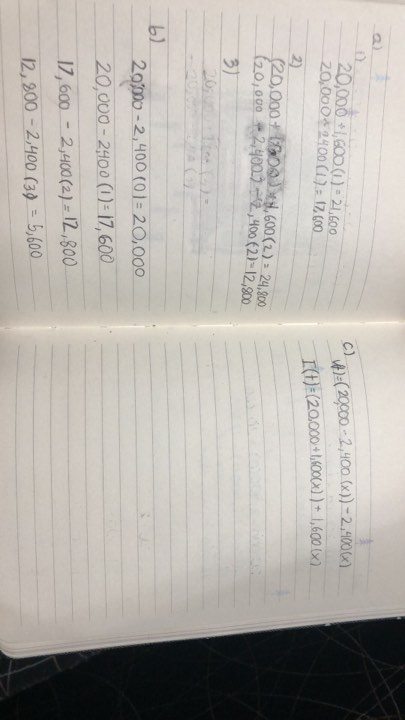 a)
1)
20,000 + 1,600(1) = 21,600
20,000 - 2400(1) = 17,600
2)
(20,000 + 1,600) + 1,600(2) = 24,800
(20,000 - 2,400) - 2,400(2) = 12,800
3)
b)
20,000 - 2,400(0) = 20,000
20,000 - 2400(1) = 17,600
17,600 - 2,400(2) = 12,800
12,800 - 2,400(3) = 5,600
c)
V(t) = (20,000 - 2,400(x)) - 2,400(x)
I(t) = (20,000 + 1,600(x)) + 1,600(x)